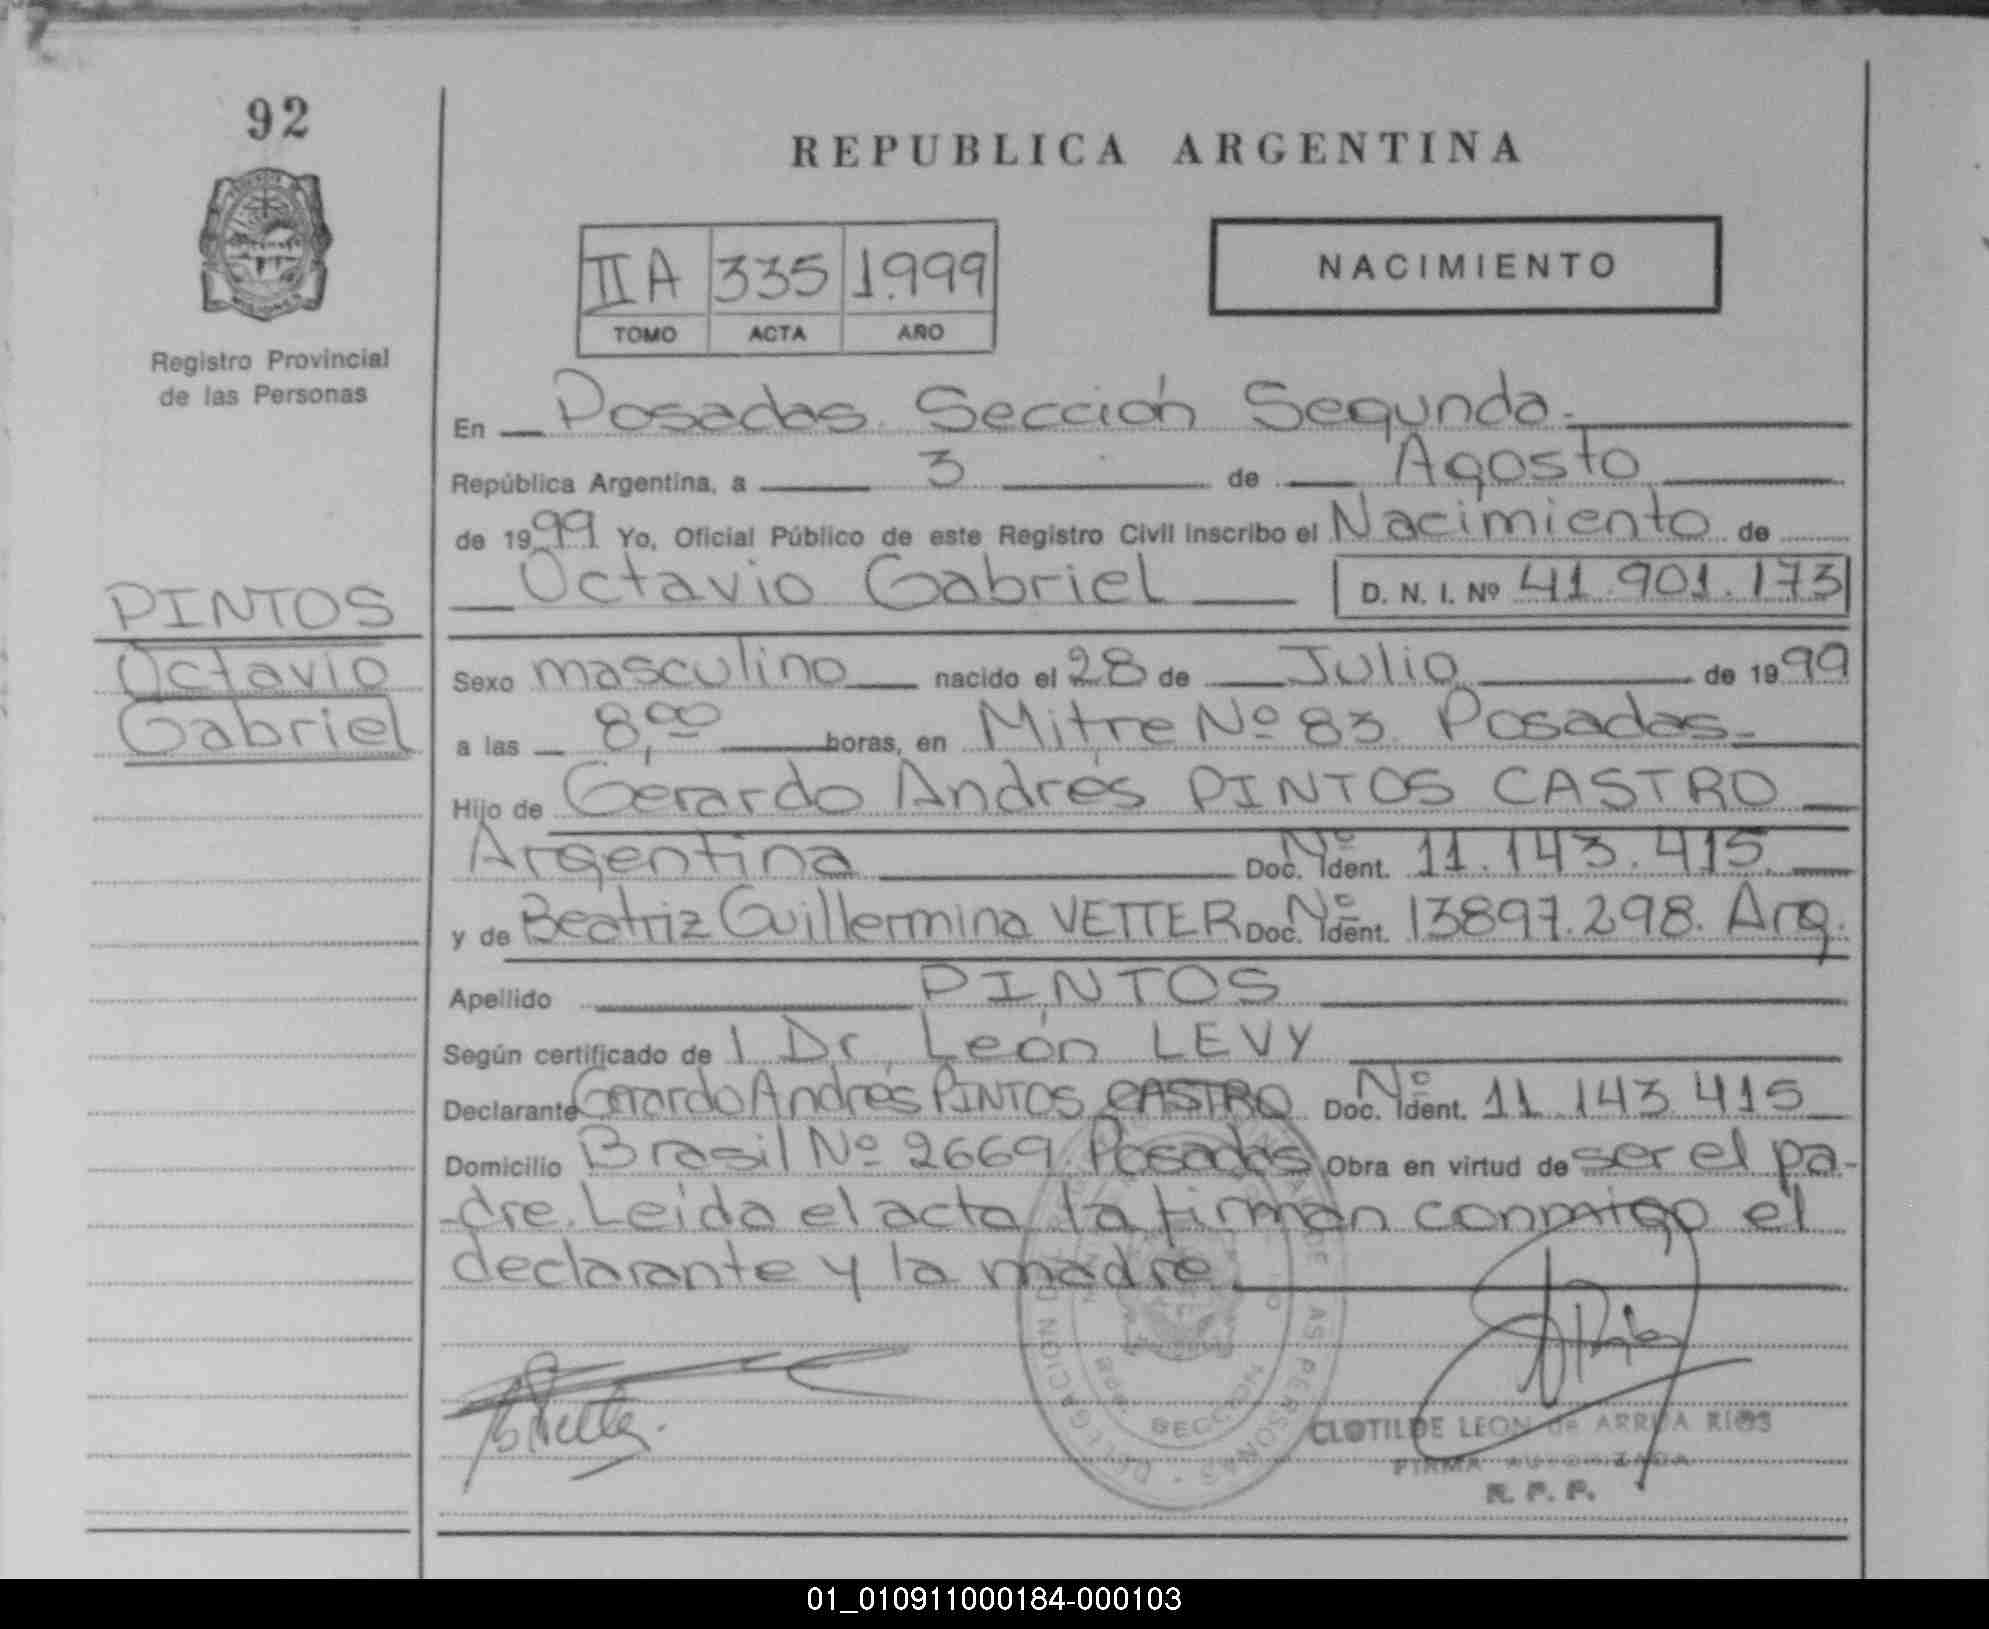 92
REPUBLICA ARGENTINA
II A 335 1.999
TOMO ACTA AÑO
NACIMIENTO
Registro Provincial
de las Personas
En Posadas. Sección Segunda.
República Argentina, a 3 de Agosto
de 1999 Yo, Oficial Público de este Registro Civil inscribo el Nacimiento de
Octavio Gabriel D. N. I. Nº 41.901.173
PINTOS
Octavio
Gabriel
Sexo masculino nacido el 28 de Julio de 1999
a las 8,00 horas, en Mitre Nº 83 Posadas.
Hijo de Gerardo Andrés PINTOS CASTRO
Argentina Doc. Ident. Nº 11.143.415.
y de Beatriz Guillermina VETTER Doc. Ident. Nº 13897.298. Arg.
Apellido PINTOS
Según certificado de l Dr. León LEVY
Declarante Gerardo Andrés PINTOS CASTRO Doc. Ident. Nº 11.143.415
Domicilio Brasil Nº 2669 Posadas Obra en virtud de ser el pa-
-dre. Leida el acta la firman conmigo el
declarante y la madre.
B Vetter.
CLOTILDE LEON de ARRUA RIOS
FIRMA AUTORIZADA
R. P. P.
01_010911000184-000103